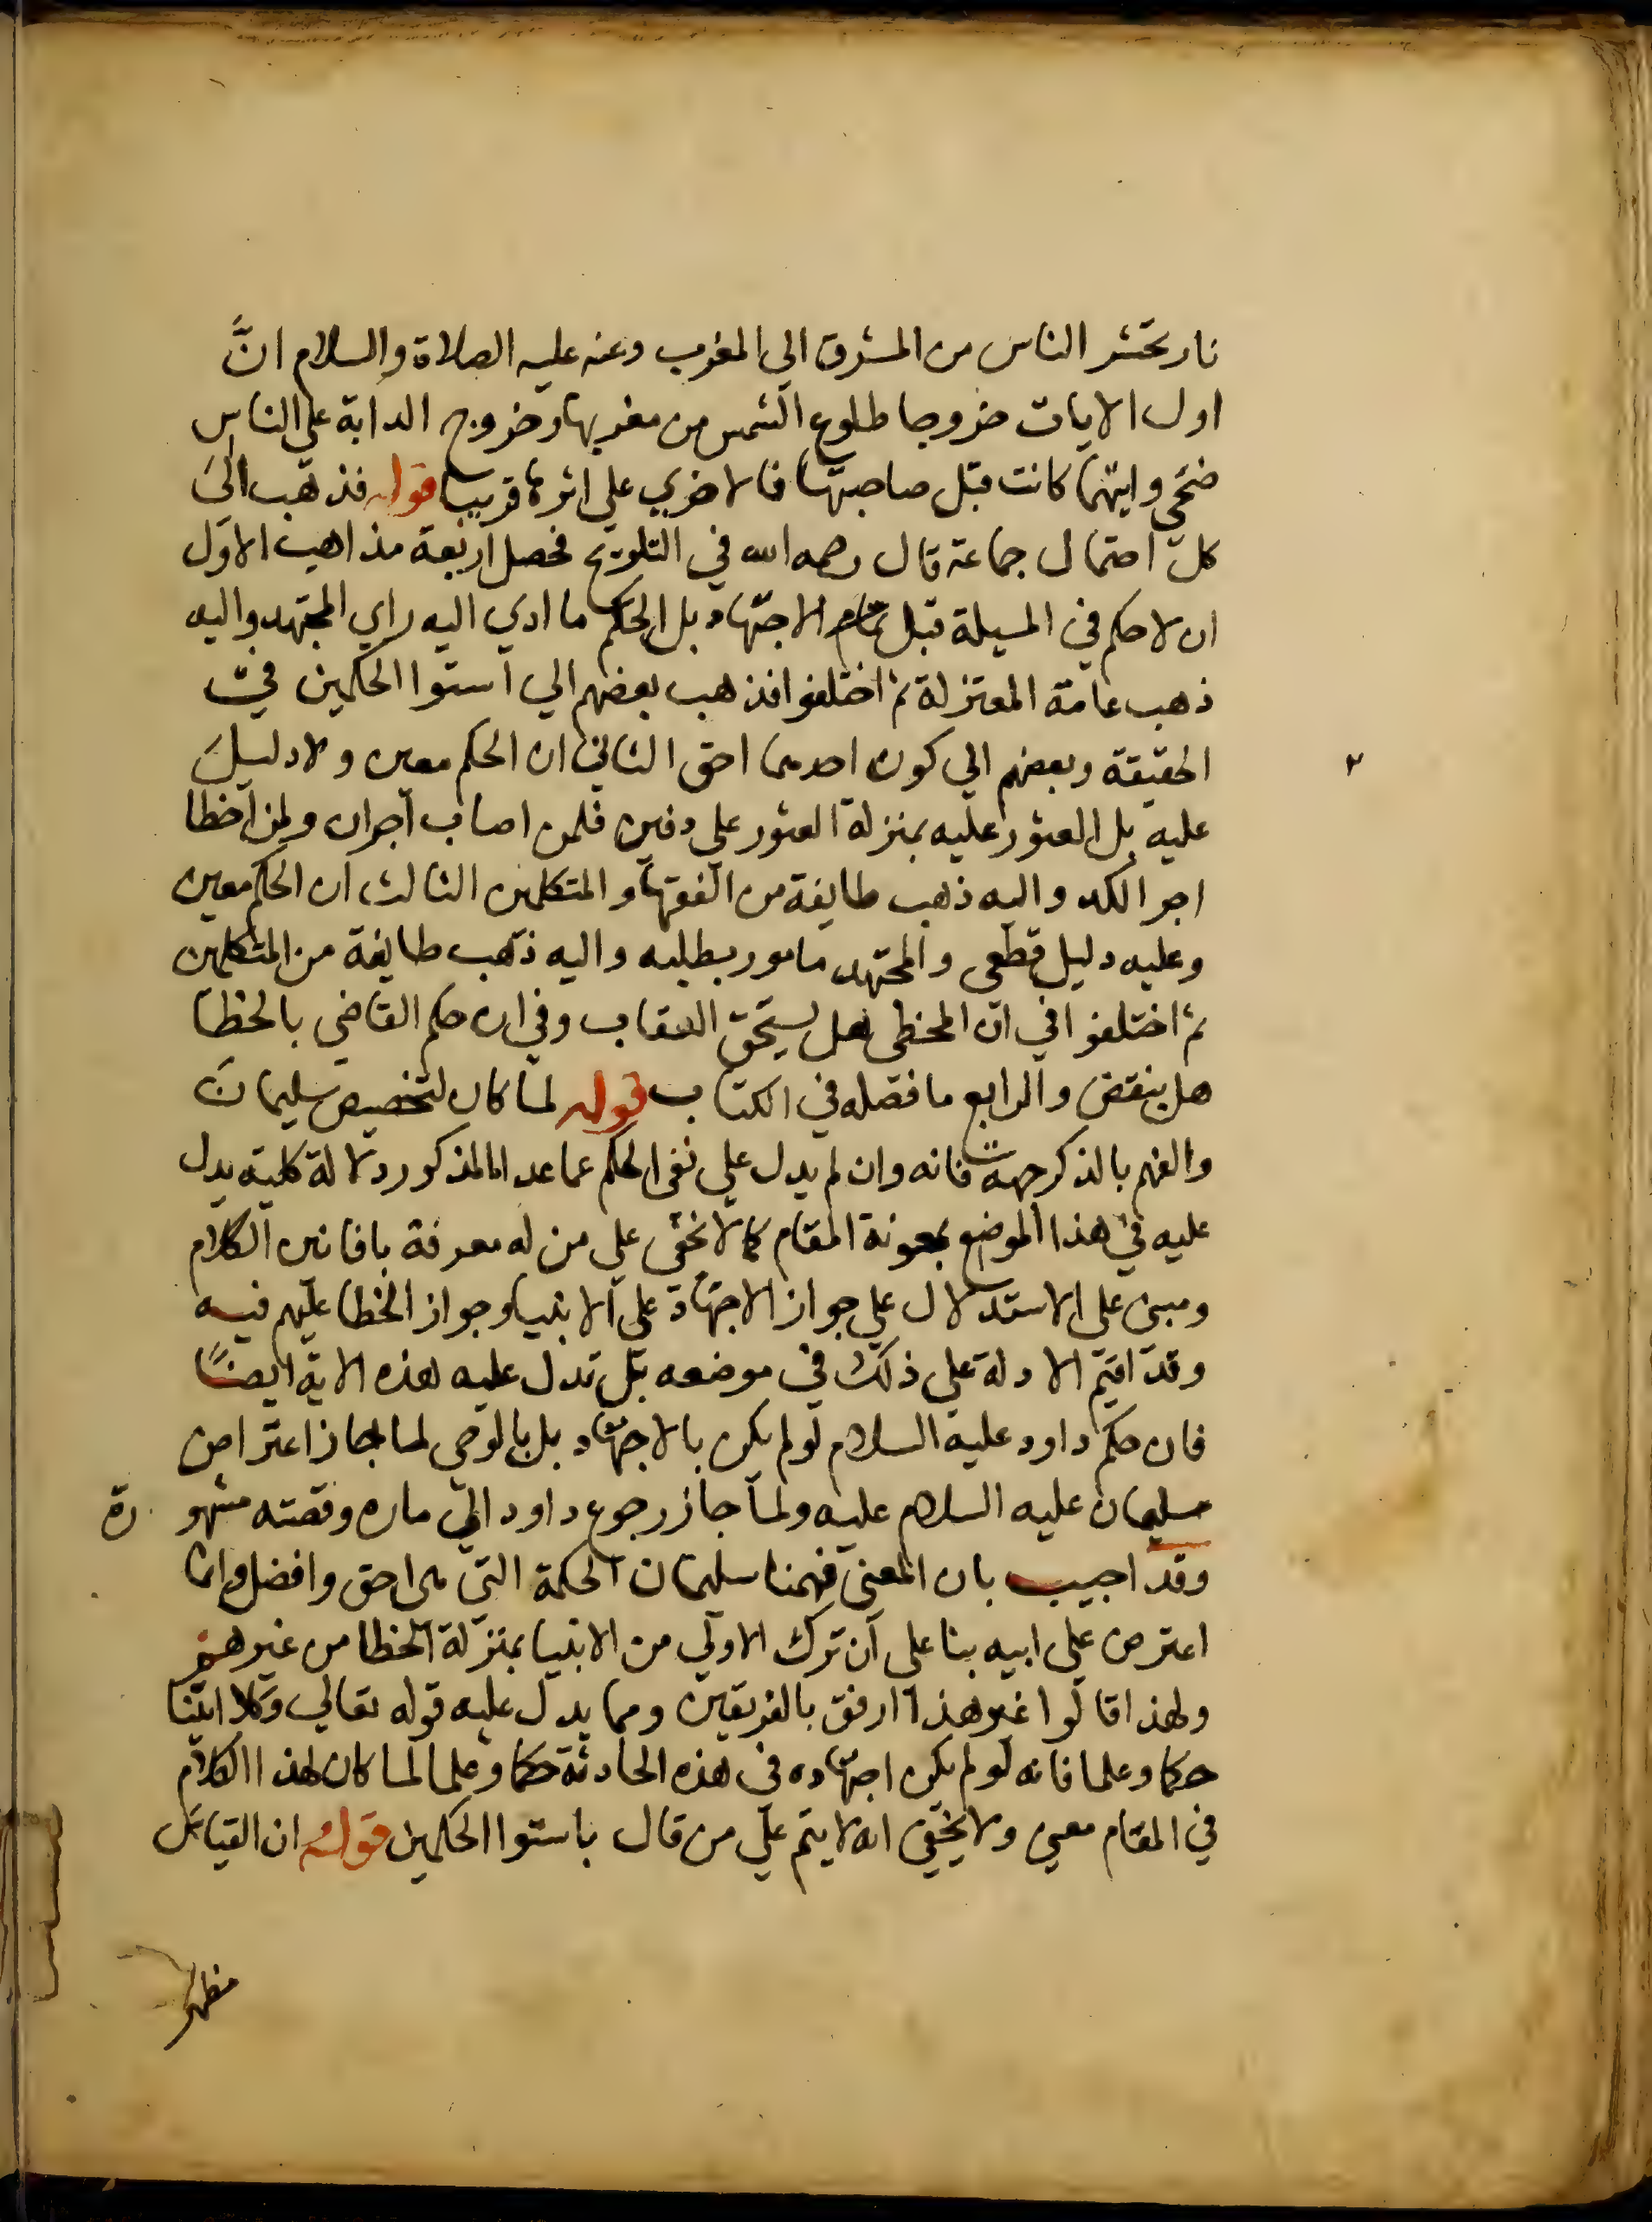 نار تحشر الناس من المشرق الي المغرب وعنه عليه الصلاة والسلام انَّ
اول الايات خروجا طلوع الشمس من مغربها وخروج الدابة علي الناس
ضحي وايتهما كانت قبل صاحبتها فالاخري علي اثرها قريبا قوله فذهب الي
كل احتمال جماعة قال رحمه الله في التلويح فحصل اربعة مذاهب الاول
ان لا حكم في المسيلة قبل الاجتهاد بل الحكم ما ادي اليه راي المجتهد واليه
ذهب عامة المعتزلة ثم اختلفوا فذهب بعضهم الي استوا الحكمين في
الحقيقة وبعضهم الي كون احدهما احق الثاني ان الحكم معين ولا دليل
عليه بل العثور عليه بمنزلة العثور علي دفين فلمن اصاب اجران ولمن اخطا
اجر الكد واليه ذهب طايفة من الفقها والمتكلمين الثالث ان الحكم معين
وعليه دليل قطعي والمجتهد مامور بطلبه واليه ذهب طايفة من المتكلمين
ثم اختلفوا في ان المخطي هل يستحق العقاب وفي ان حكم القاضي بالخطا
هل ينقض والرابع ما فصله في الكتاب قوله لما كان لتخصيص سليمان
والفهم بالذكر جهة فانه وان لم يدل علي نفي الحكم عما عدا المذكور دلالة كلية يدل
عليه في هذا الموضع بمعونة المقام كما لا تخفي علي من له معرفة بافانين الكلام
ومبني علي الاستدلال علي جواز الاجتهاد علي الانبيا وجواز الخطا عليهم فيه
وقد اقيم الادلة علي ذلك في موضعه بل تدل عليه هذه الاية ايضًا
فان حكم داود عليه السلام لو لم يكن بالاجتهاد بل بالوحي لما جاز اعتراض
سليمان عليه السلام عليه ولما جاز رجوع داود الي ماره وقصته مشهورة
وقد اجيب بان المعني ففهمنا سليمان الحكمة التي هي احق وافضل وانما
اعترض علي ابيه بنا علي ان ترك الاولي من الانبيا بمنزلة الخطا من غيرهم
ولهذا قالوا غير هذا ارفق بالفريقين ومما يدل عليه قوله تعالي وكلا اتينا
حكما وعلما فانه لو لم يكن اجتهاده في هذه الحادثة حكما وعلما لما كان لهذا الكلام
في المقام معني ولا يخفي انه لا يتم علي من قال باستوا الحكمين قوله ان القياس
مظهر
٢